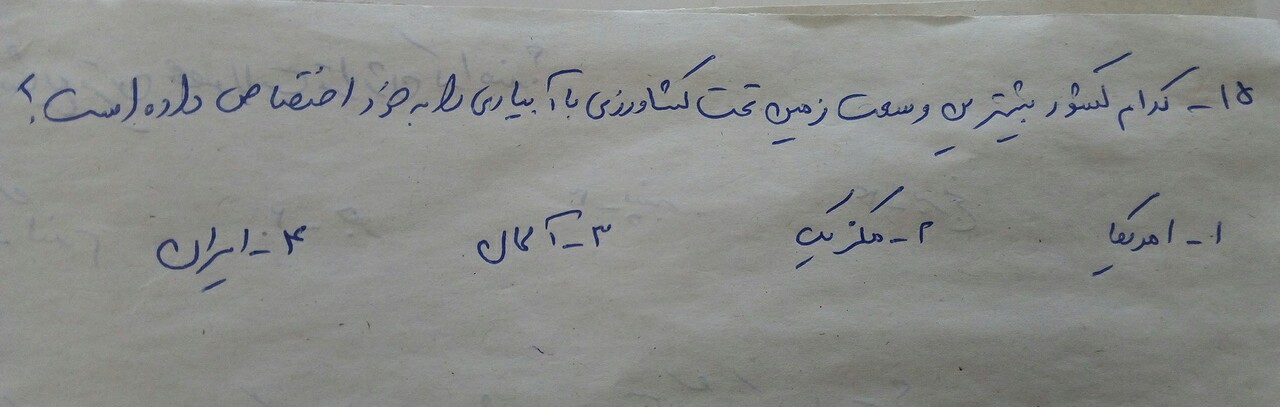 ۱۵- کدام کشور بیشترین وسعت زمین تحت کشاورزی با آبیاری را به خود اختصاص داده است؟
۱- امریکا ۲- مکزیک ۳- آلمان ۴- ایران